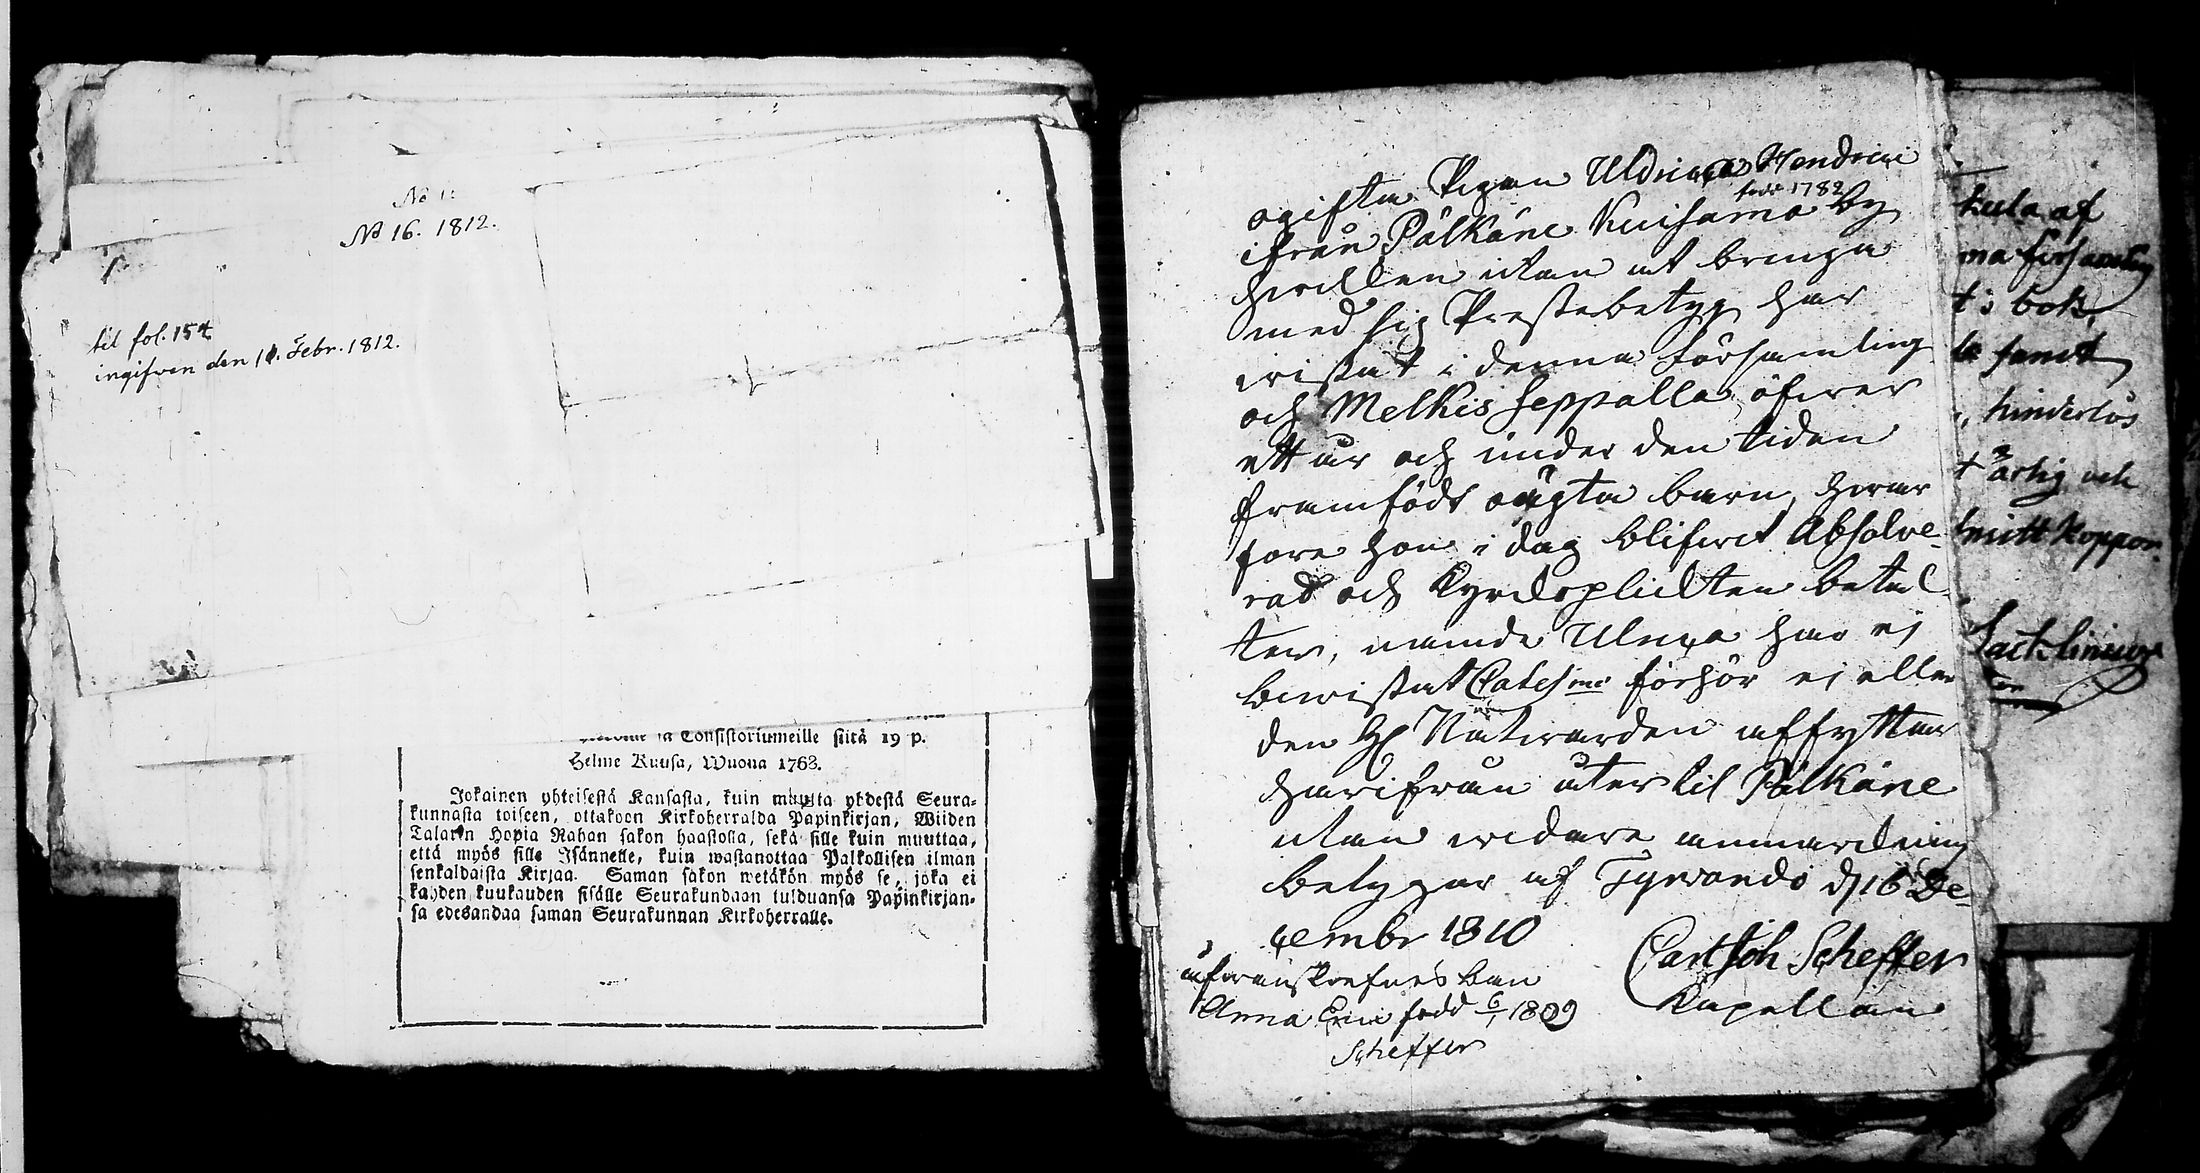 No 1:
No 16. 1812.
til fol. 154
ingifven den 11. Febr. 1812.
Consistoriumeille siitä 19 p.
Helme Kuusa, Wuona 1763.
Jokainen yhteisestä Kansasta, kuin muutta yhdestä Seura-
kunnasta toiseen, ottakoon Kirkoherralda Papinkirjan, Wiiden
Talarin Hopia Rahan sakon haastolla, sekä sille kuin muuttaa,
että myös sille Isännelle, kuin wastanottaa Palkollisen ilman
senkaldaista Kirjaa. Saman sakon wetäkön myös se, joka ei
kahden kuukauden sisälle Seurakundaan tulduansa Papinkirjan-
sa edesandaa saman Seurakunnan Kirkoherralle.
ogifta Pigan Ulrica Hendrici
född 1782
ifrån Pälkäne Kuisama by
hvilken utan at bringa
med sig Prestebetyg har
vistat i denna församling
och Melkis Seppälla öfver
ett år och under den tiden
framfödt oägta barn, hvar
före hon i dag blifvit Absolve-
rad och Kyrkoplickten betal-
ter, nämde Ulrica har ej
bevistat Catesmi förhör ej eller
den H Nattvarden afflyttar
härifrån åter til Pälkäne
utan vidare anmärkning
betygar af Tyrvändö d 16 De-
cembr 1810
Carl Joh Scheffer
Kapellan
ofvanskrefnes barn
Anna född 6/1 1809
Scheffer
kula af
ma församling
t: bok,
samt
, hinderlös
t ärlig och
mitt Koppor.